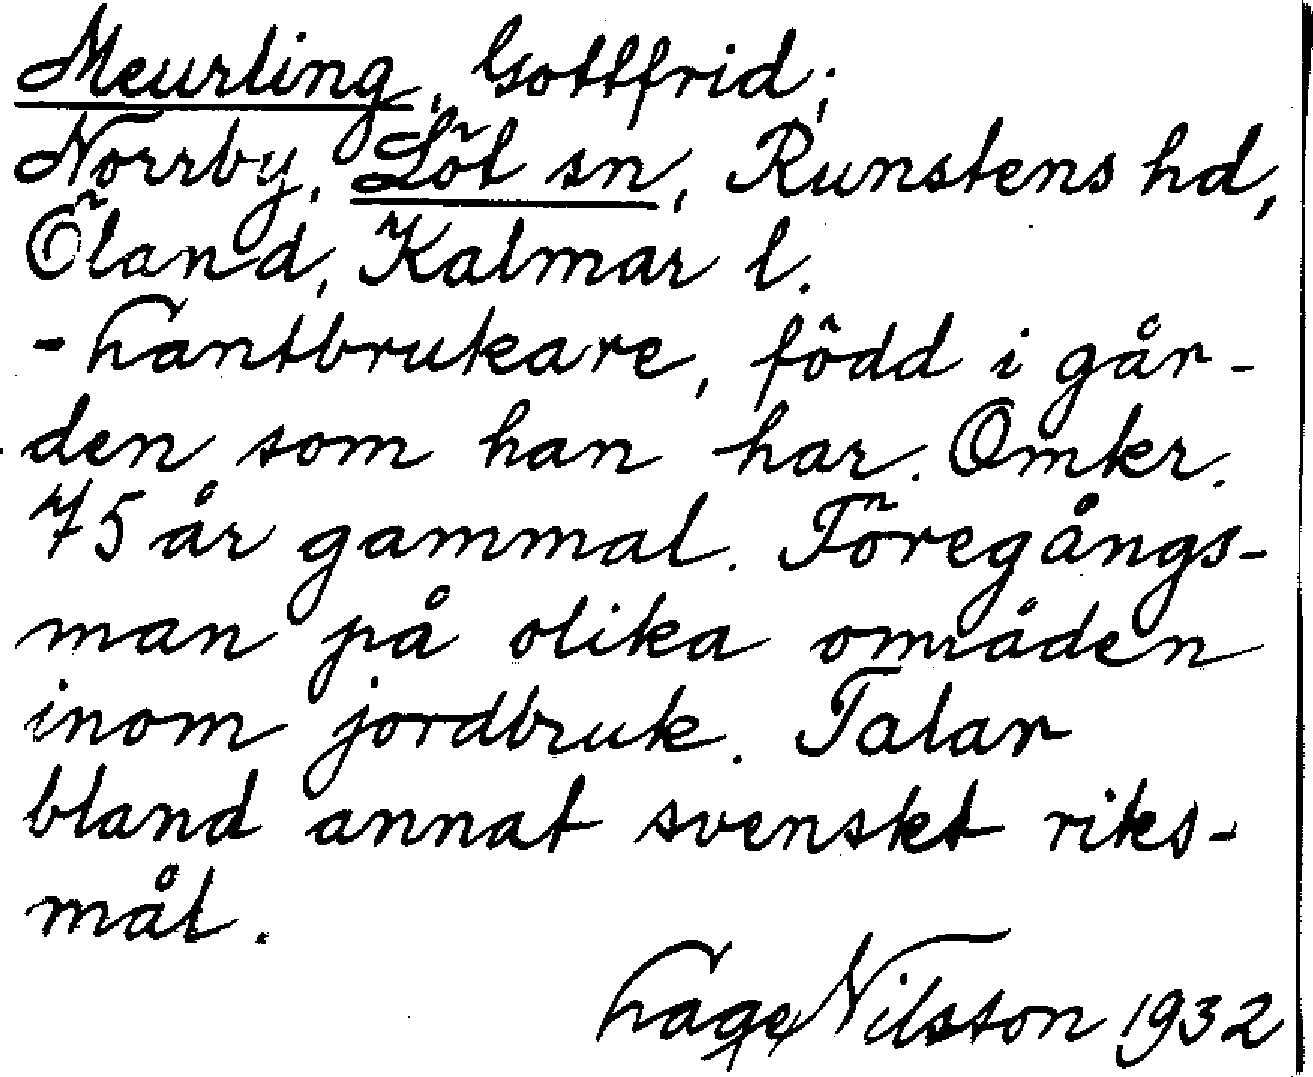 Meurling, Gottfrid;
Norrby, Löt sn, Runstens hd,
Öland, Kalmar l.
- Lantbrukare, född i går-
den som han har. Omkr.
75 år gammal. Föregångs-
man på olika områden
inom jordbruk. Talar
bland annat svenskt riks-
mål.
Lage Nilsson 1932